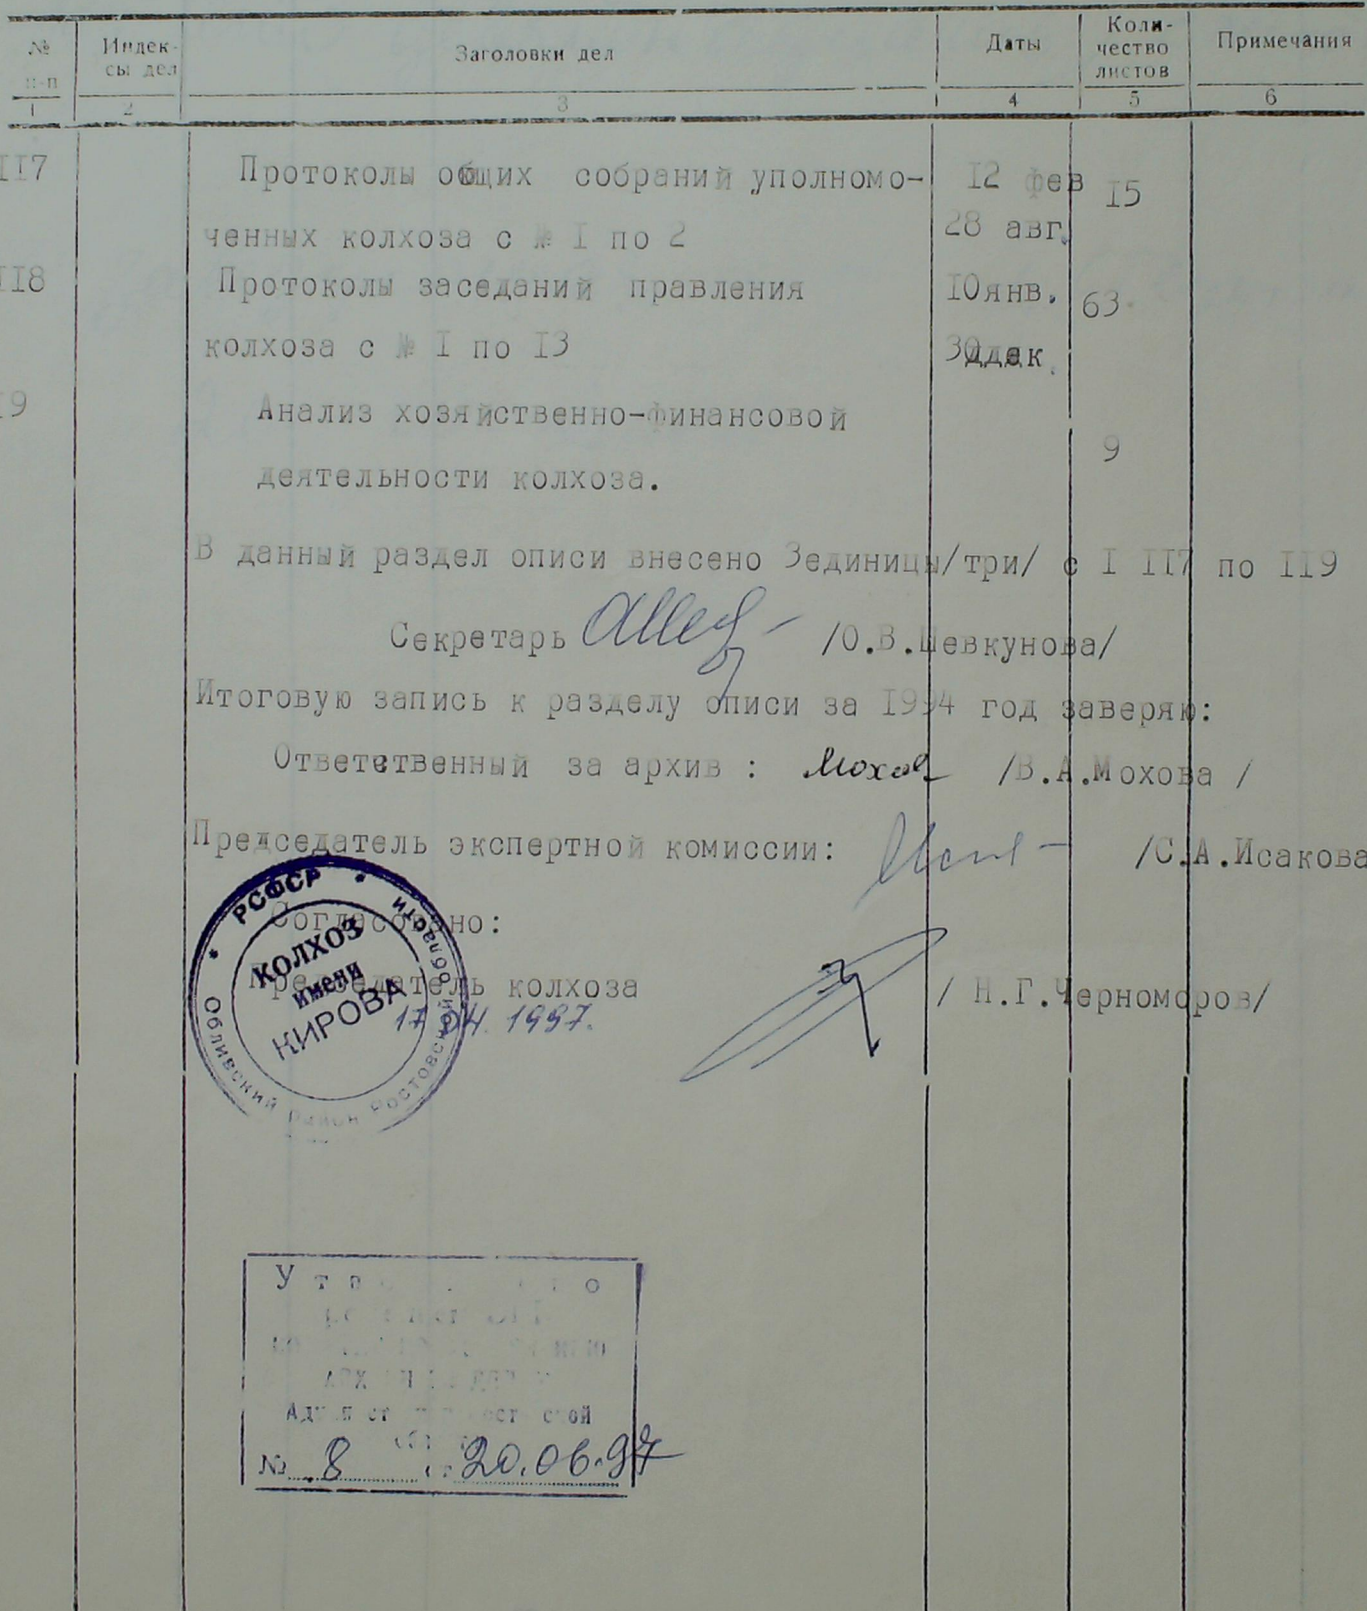 № п-п Индек- сы дел Заголовки дел Даты Коли- чество листов Примечания
1 2 3 4 5 6
II7 Протоколы общих собраний уполномо- I2 фев I5
ченных колхоза с № I по 2 28 авг.
II8 Протоколы заседаний правления I0янв. 63
колхоза с № I по I3 30 дек.
I9 Анализ хозяйственно-финансовой
деятельности колхоза. 9
В данный раздел описи внесено 3единицы/три/ с I II7 по II9
Секретарь /О.В.Шевкунова/
Итоговую запись к разделу описи за I994 год заверяю:
Ответственный за архив : Мохов /В.А.Мохова /
Председатель экспертной комиссии: /С.А.Исакова
Согласовано:
Председатель колхоза / Н.Г.Черноморов/
17.04.1997.
РСФСР
Обливский район Ростовской области
КОЛХОЗ
имени
КИРОВА
№ 8 от 20.06.97